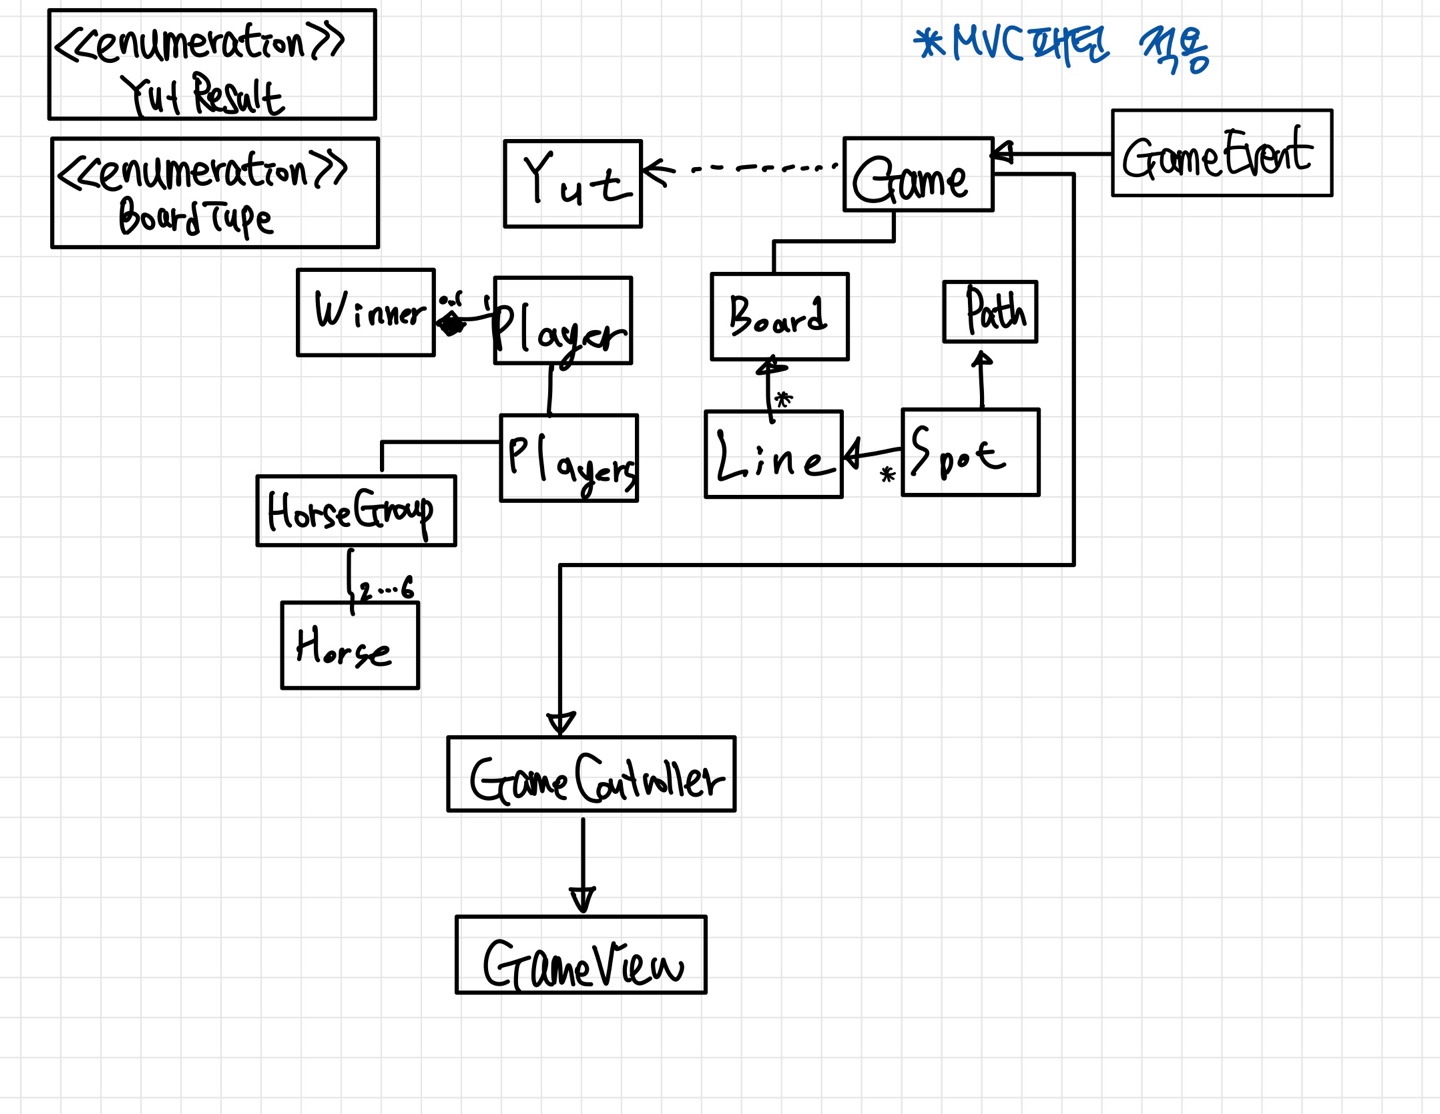 <<enumeration>>
Yut Result
*MVC패턴 적용
<<enumeration>>
BoardType
Yut
Game
GameEvent
Winner
1
Player
Board
Path
*
Players
Line
*
Spot
HorseGroup
2...6
Horse
GameController
GameView